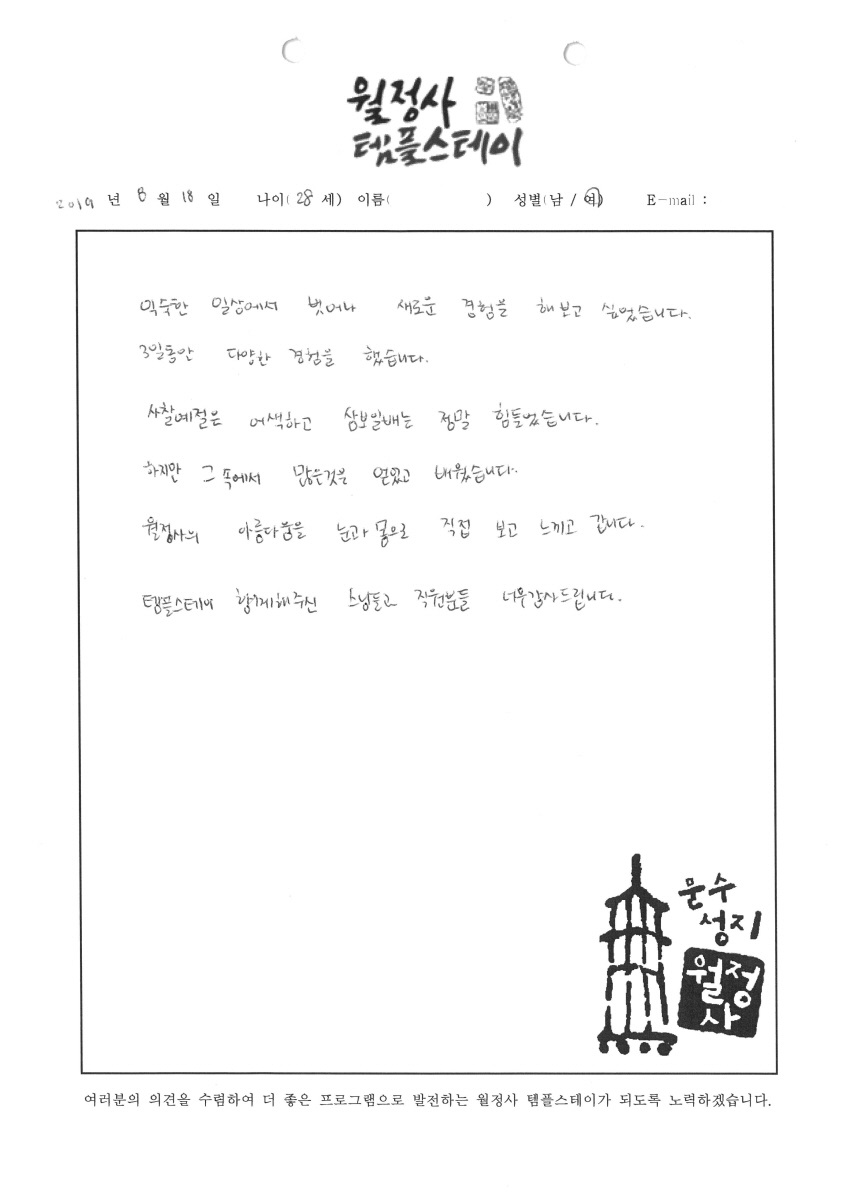 월정사
템플스테이
2019 년 8 월 18 일 나이( 28 세) 이름( ) 성별(남 / 여) E-mail :
익숙한 일상에서 벗어나 새로운 경험을 해보고 싶었습니다.
3일동안 다양한 경험을 했습니다.
사찰예절은 어색하고 삼보일배는 정말 힘들었습니다.
하지만 그 속에서 많은것을 얻었고 배웠습니다.
월정사의 아름다움을 눈과 몸으로 직접 보고 느끼고 갑니다.
템플스테이 함께해주신 스님들과 직원분들 너무감사드립니다.
문수
성지
월정
사
여러분의 의견을 수렴하여 더 좋은 프로그램으로 발전하는 월정사 템플스테이가 되도록 노력하겠습니다.